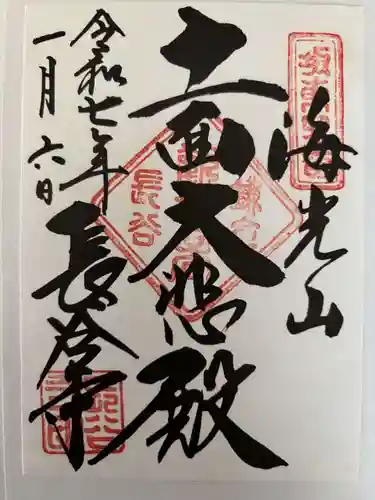 海光山
十一面大悲殿
長谷寺
令和七年
一月六日
鎌倉
長谷